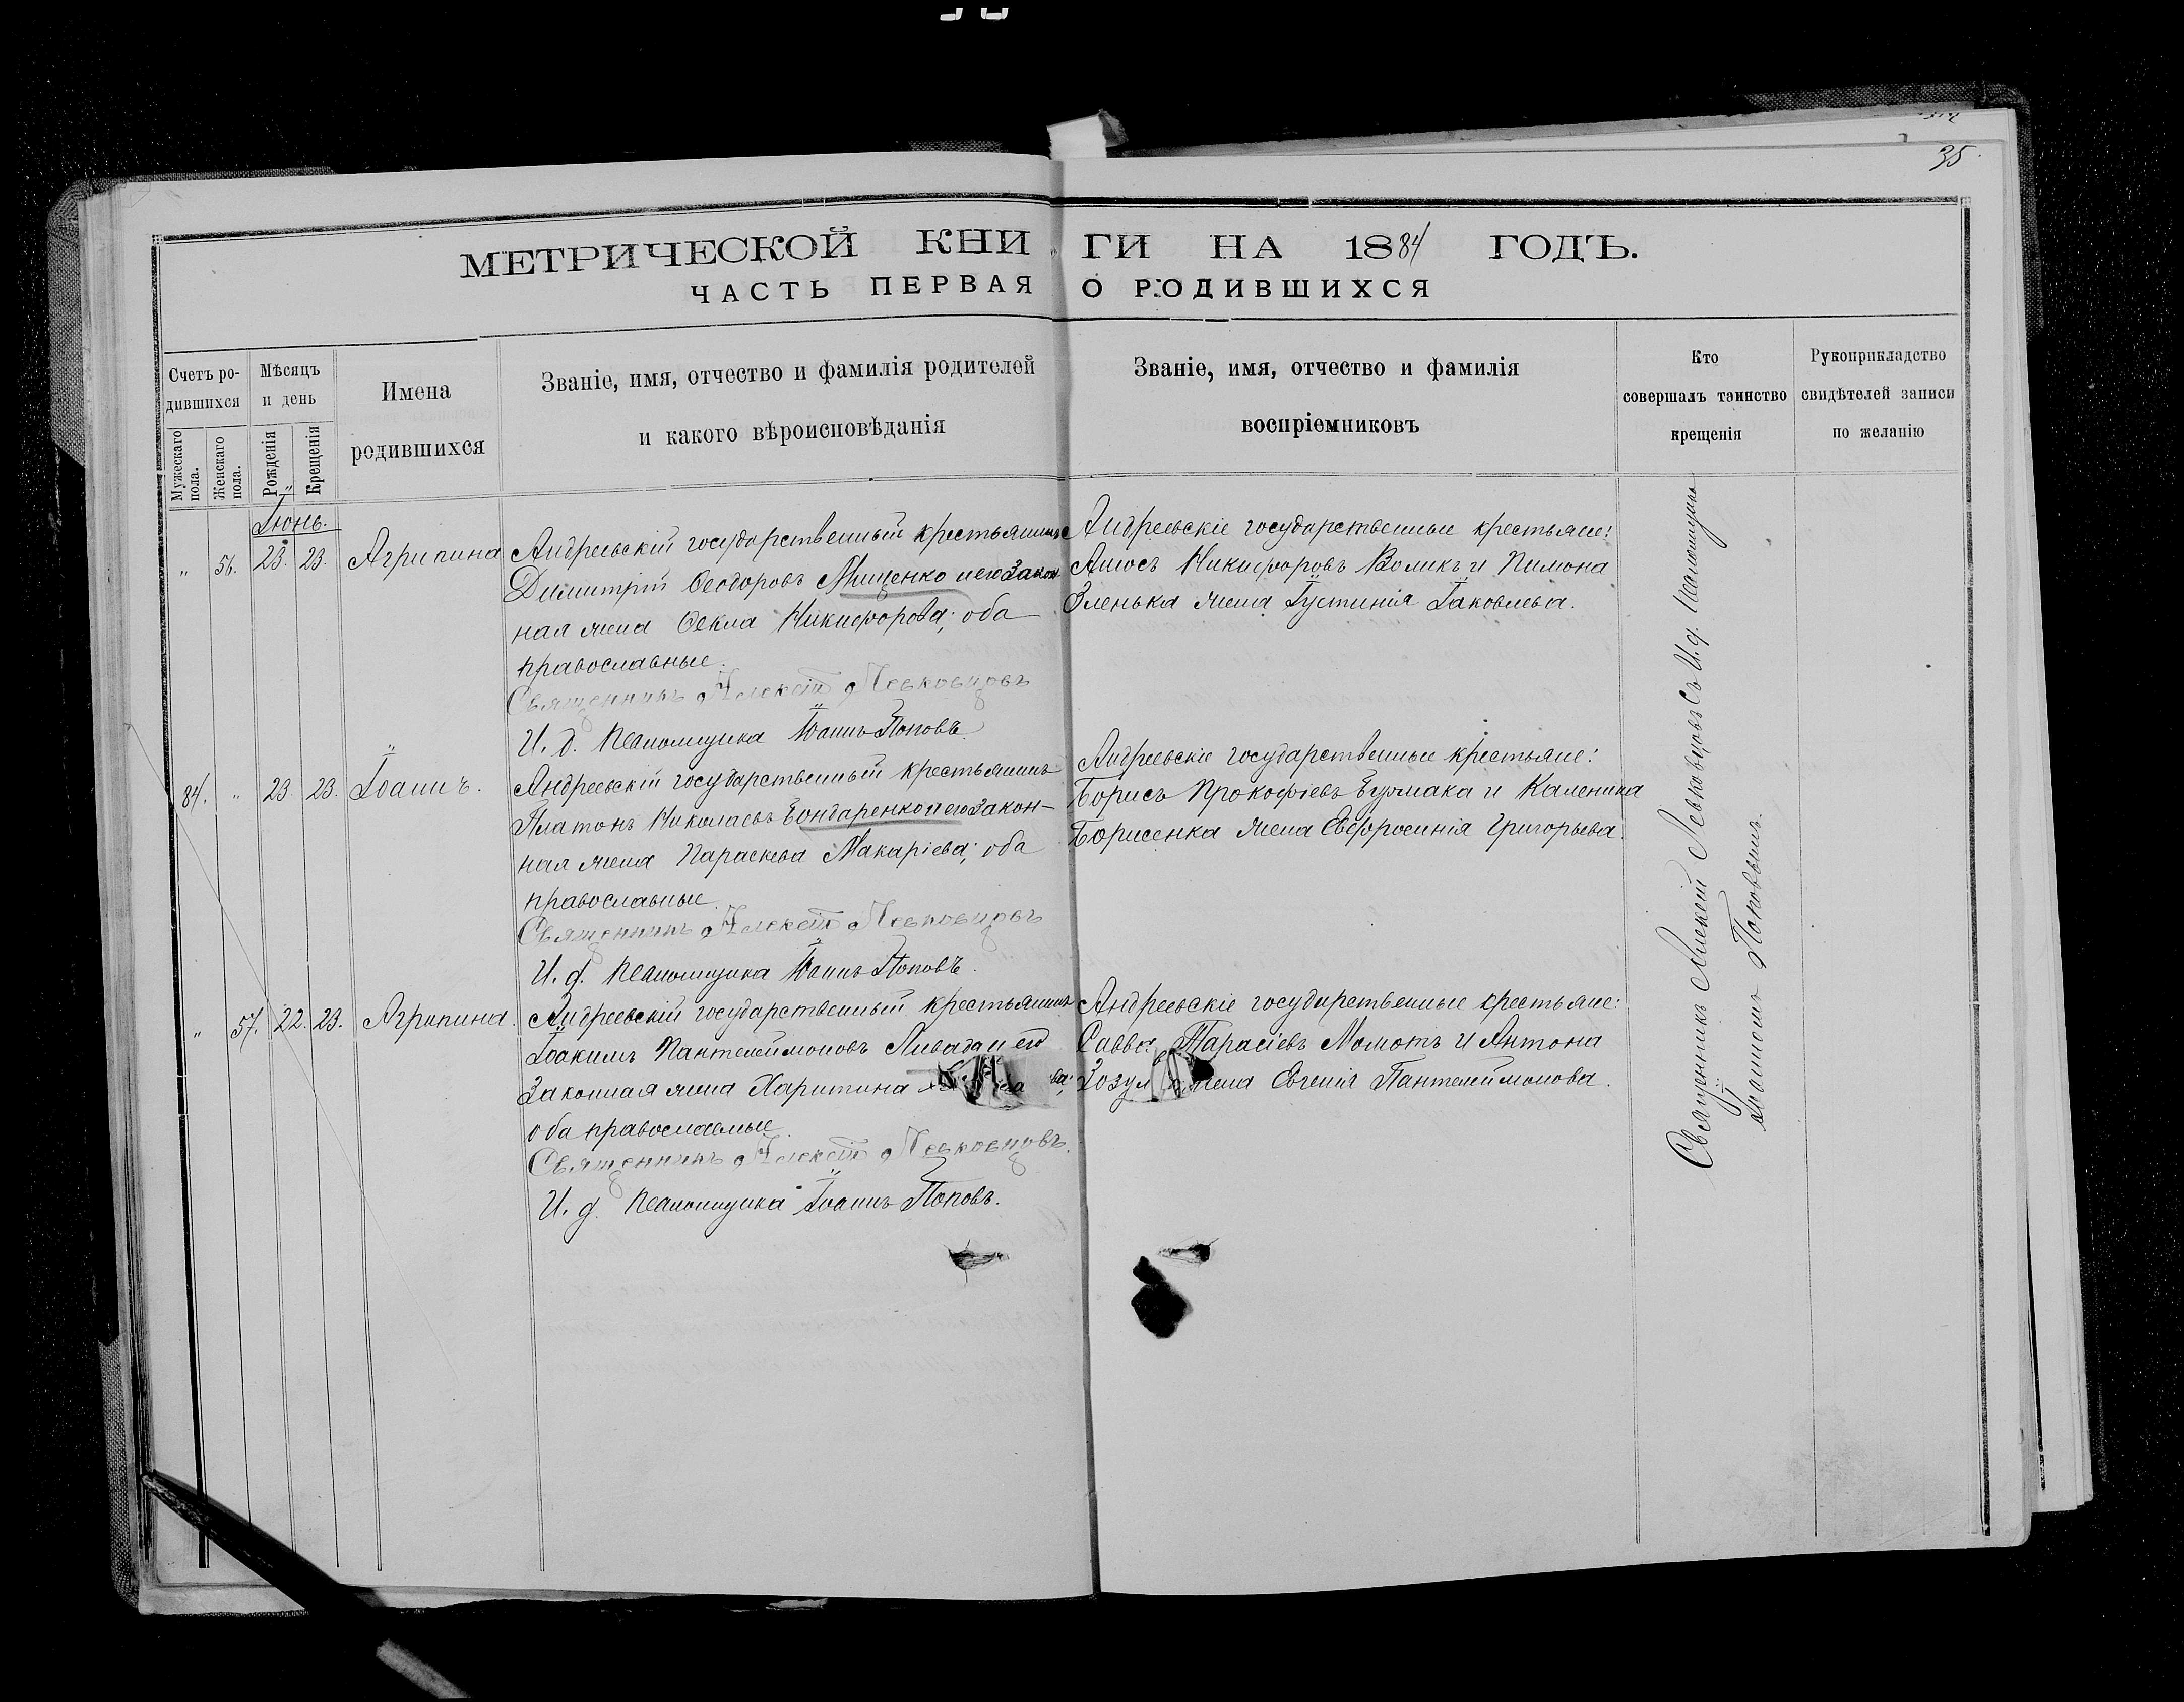 35
МЕТРИЧЕСКОЙ КНИГИ НА 1884 ГОДЪ.
ЧАСТЬ ПЕРВАЯ О РОДИВШИХСЯ
Счетъ родившихся
Мужескаго пола.
Женскаго пола.
Мѣсяцъ и день
Рожденія
Крещенія
Имена родившихся
Званіе, имя, отчество и фамилія родителей
и какого вѣроисповѣданія
Званіе, имя, отчество и фамилія
воспріемниковъ
Кто
совершалъ таинство
крещенія
Рукоприкладство
свидѣтелей записи
по желанію
Іюнь.
„ 56. 23. 23. Агрипина
Андреевскій государственный крестьянинъ
Димитрій Ѳеодоровъ Мищенко и его закон-
ная жена Ѳекла Никифорова; оба
православные.
Священникъ Алексій Левковцовъ
И. д. Псаломщика Іоаннъ Поповъ.
Андреевскіе государственные крестьяне:
Амосъ Никифоровъ Воликъ и Пимона
Зленька жена Іустинія Іаковлева.
84. „ 23 23. Іоаннъ.
Андреевскій государственный крестьянинъ
Платонъ Николаевъ Бондаренко и его закон-
ная жена Параскева Макаріева; оба
православные.
Священникъ Алексій Левковцовъ
И. д. Псаломщика Іоаннъ Поповъ.
Андреевскіе государственные крестьяне:
Борисъ Прокофіевъ Бурлака и Каленика
Борисенка жена Евфросинія Григорьева.
„ 57. 22. 23. Агрипина.
Андреевскій государственный крестьянинъ
Іоакимъ Пантелеймоновъ Ливада и его
законная жена Харитина
оба православные.
Священникъ Алексій Левковцовъ.
И. д. Псаломщика Іоаннъ Поповъ.
Андреевскіе государственные крестьяне:
Савва Тарасіевъ Момотъ и Антона
жена Евгенія Пантелеймонова.
Священникъ Алексій Левковцовъ съ И. д. Псаломщика
Іоанномъ Поповымъ.